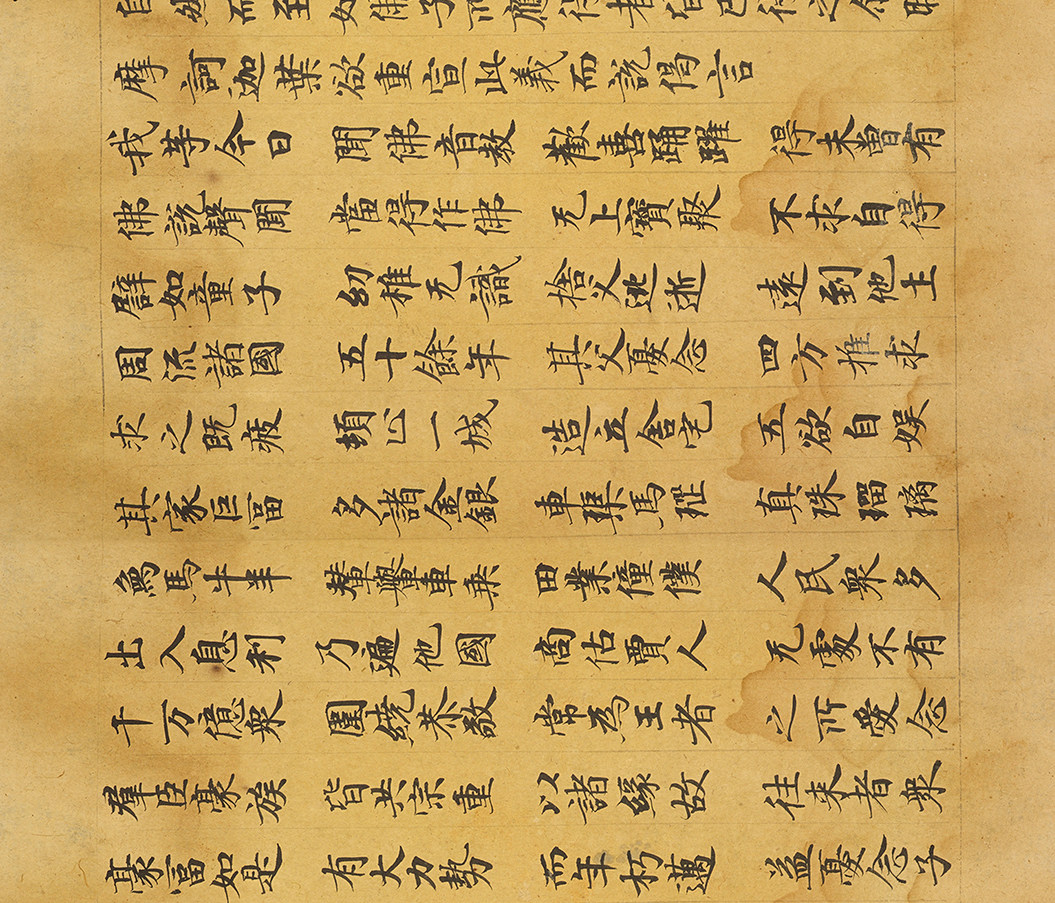 自然而至如佛子所應得者皆已得之尒時
摩訶迦葉欲重宣此義而說偈言
我等今日 聞佛音教 歡喜踊躍 得未曾有
佛說聲聞 當得作佛 无上寶聚 不求自得
譬如童子 幼稚无識 捨父逃逝 遠到他土
周流諸國 五十餘年 其父憂念 四方推求
求之既疲 頓止一城 造立舍宅 五欲自娛
其家巨富 多諸金銀 車璖馬瑙 真珠瑠璃
象馬牛羊 輦輿車乘 田業僮僕 人民衆多
出入息利 乃遍他國 商估賈人 无處不有
千万億衆 圍繞恭敬 常為王者 之所愛念
羣臣豪族 皆共宗重 以諸緣故 往来者衆
豪富如是 有大力勢 而年朽邁 益憂念子